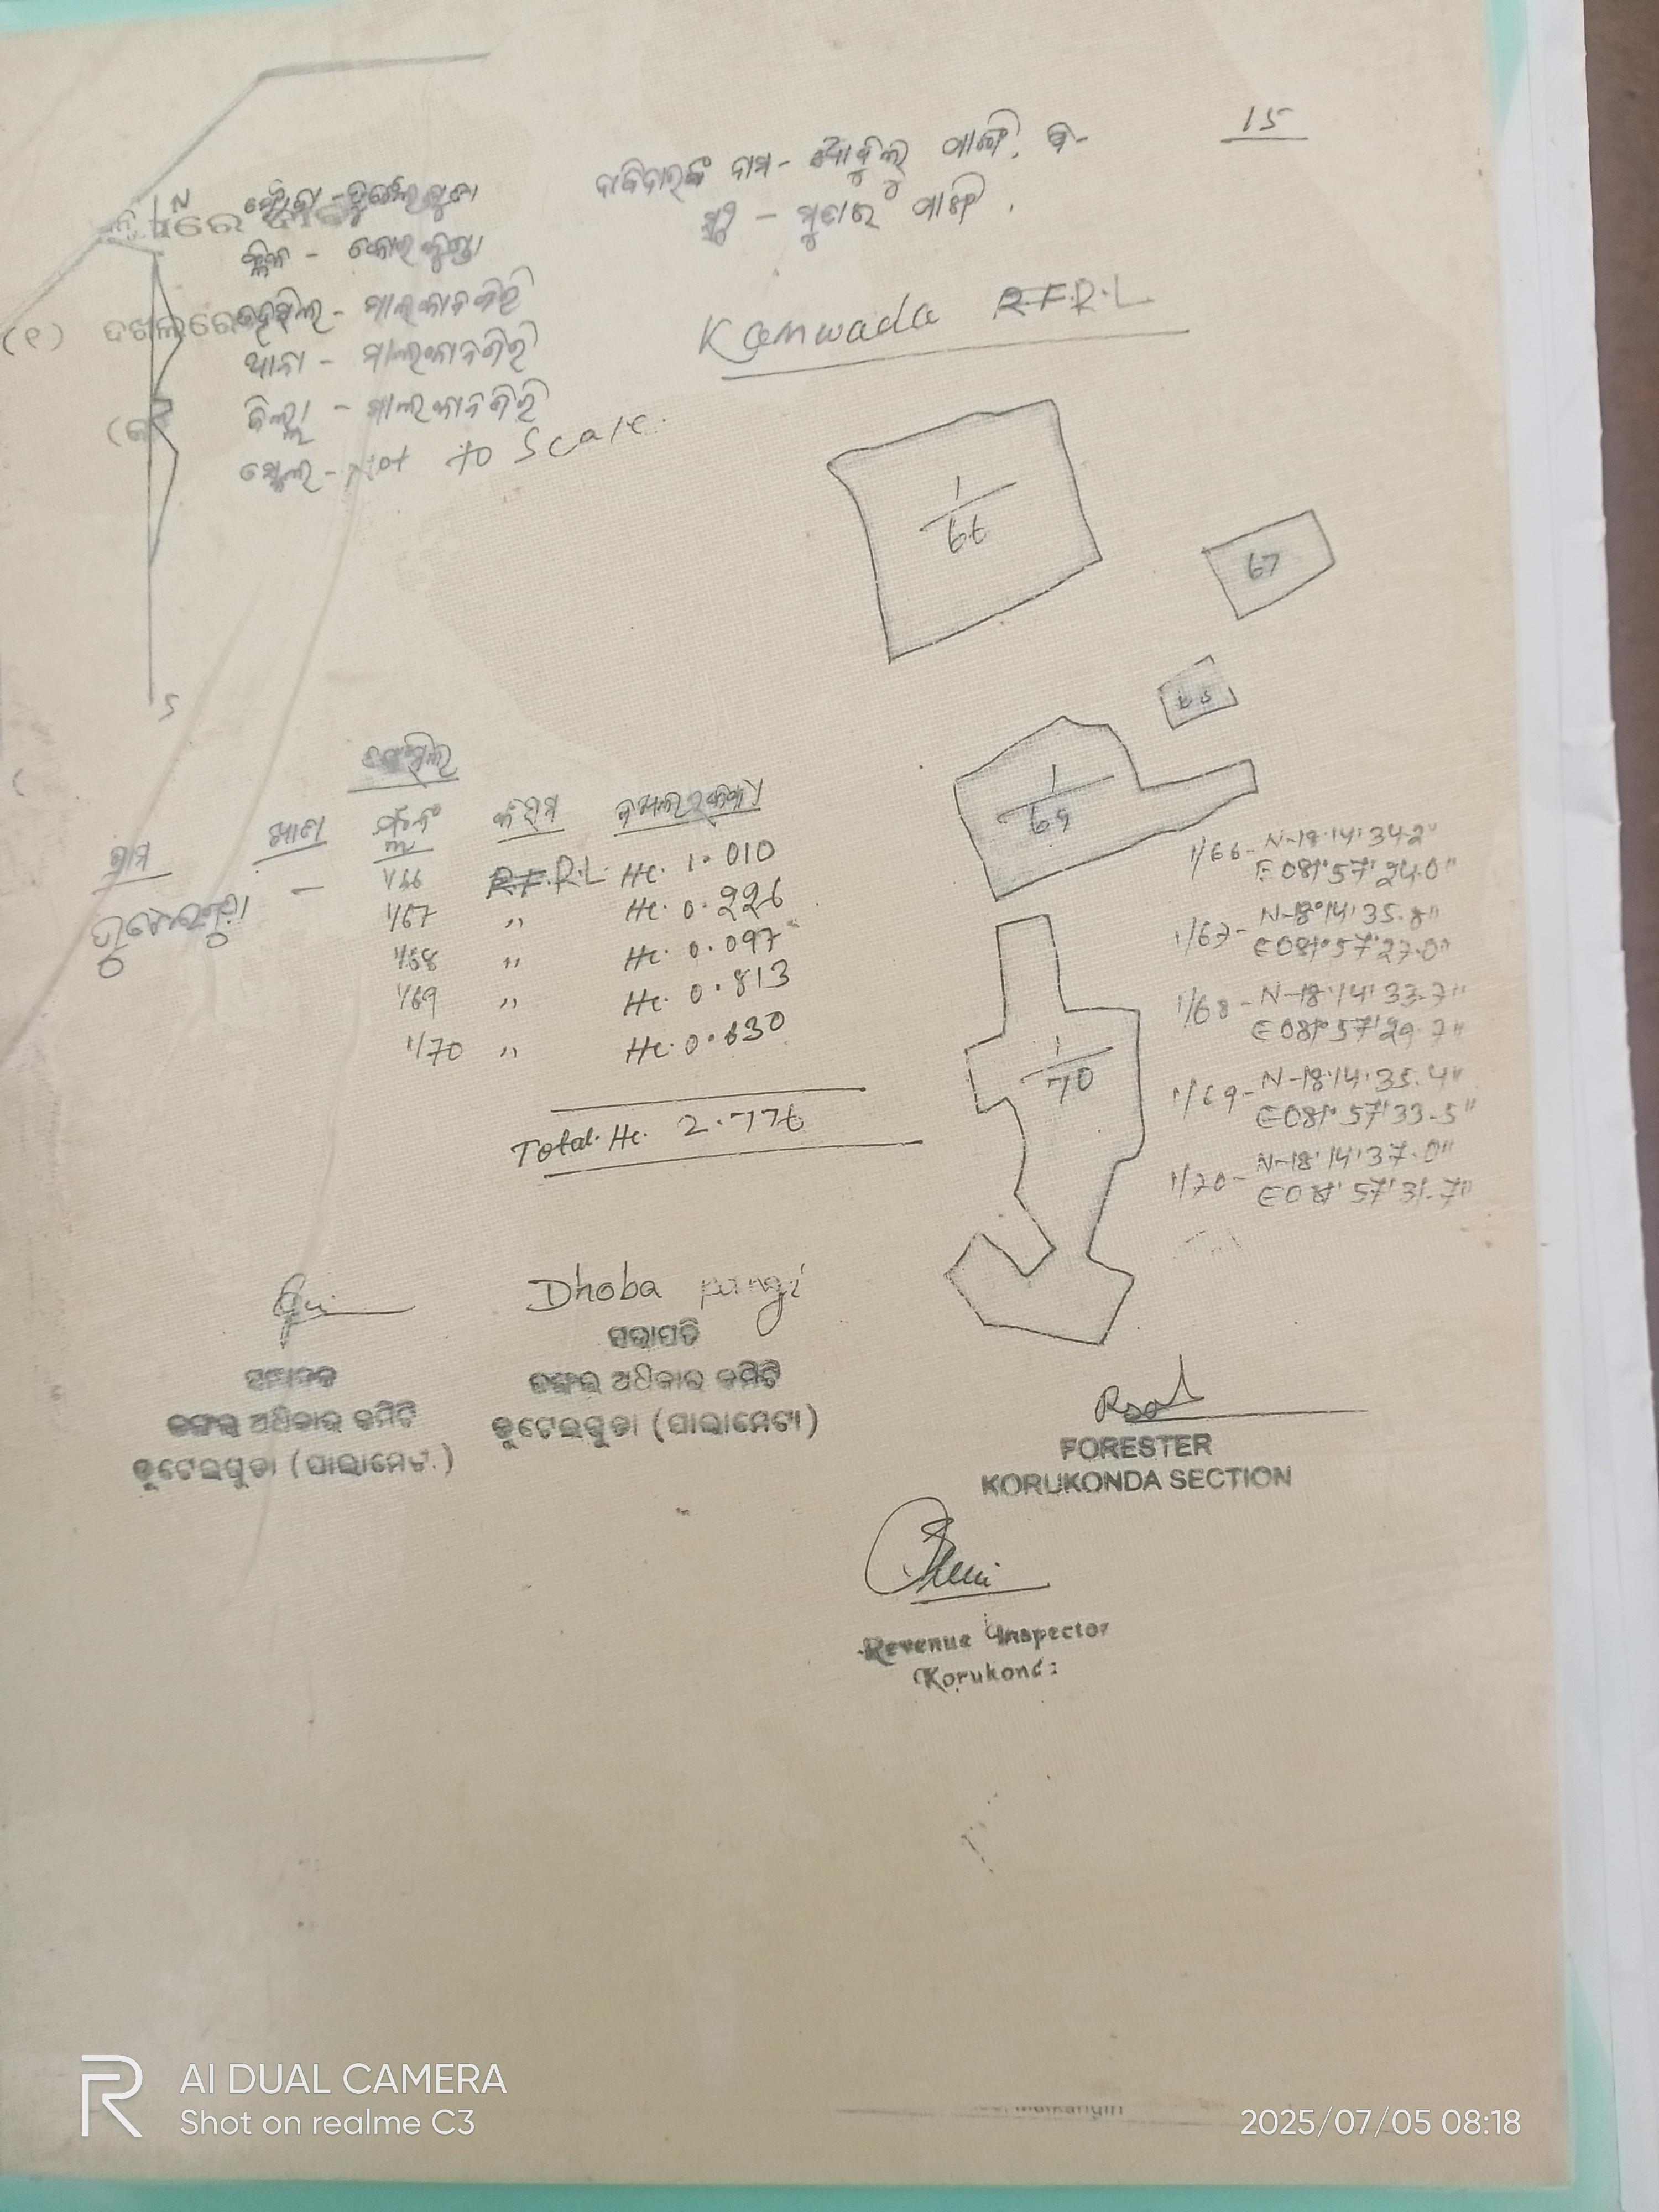 15
ଦାବିଦାରଙ୍କ ନାମ - ପାଙ୍ଗି
ପାଙ୍ଗି
N
ବ୍ଲକ - କୋରୁକୁଣ୍ଡା
(୧) ଦଖଲରେ
ତହସିଲ - ମାଲକାନଗିରି
ଥାନା - ମାଲକାନଗିରି
ଜିଲ୍ଲା - ମାଲକାନଗିରି
ସ୍କେଲ - Not to Scale.
Kamwada R.F.R.L
1/66
67
68
1/69
1/70
S
ଗ୍ରାମ ଖାତା କିସମ
— 1/66 R.F.R.L Hc. 1.010
1/67 " Hc. 0.226
1/68 " Hc. 0.097
1/69 " Hc. 0.813
1/70 " Hc. 0.630
Total. Hc. 2.776
1/66 - N-18°14'34.2"
E081°57'24.0"
1/67 - N-18°14'35.8"
E081°57'27.0"
1/68 - N-18°14'33.7"
E081°57'29.7"
1/69 - N-18°14'35.4"
E081°57'33.5"
1/70 - N-18°14'37.0"
E081°57'31.7"
Dhoba pangi
ସଭାପତି
ଜଙ୍ଗଲ ଅଧିକାର କମିଟି
ତୁଟେଇଗୁଡା (ପାଲାମେଟା)
ସମ୍ପାଦକ
ଜଙ୍ଗଲ ଅଧିକାର କମିଟି
ତୁଟେଇଗୁଡା (ପାଲାମେଟା)
FORESTER
KORUKONDA SECTION
Revenue Inspector
Korukonda
Malkangiri
AI DUAL CAMERA
Shot on realme C3
2025/07/05 08:18